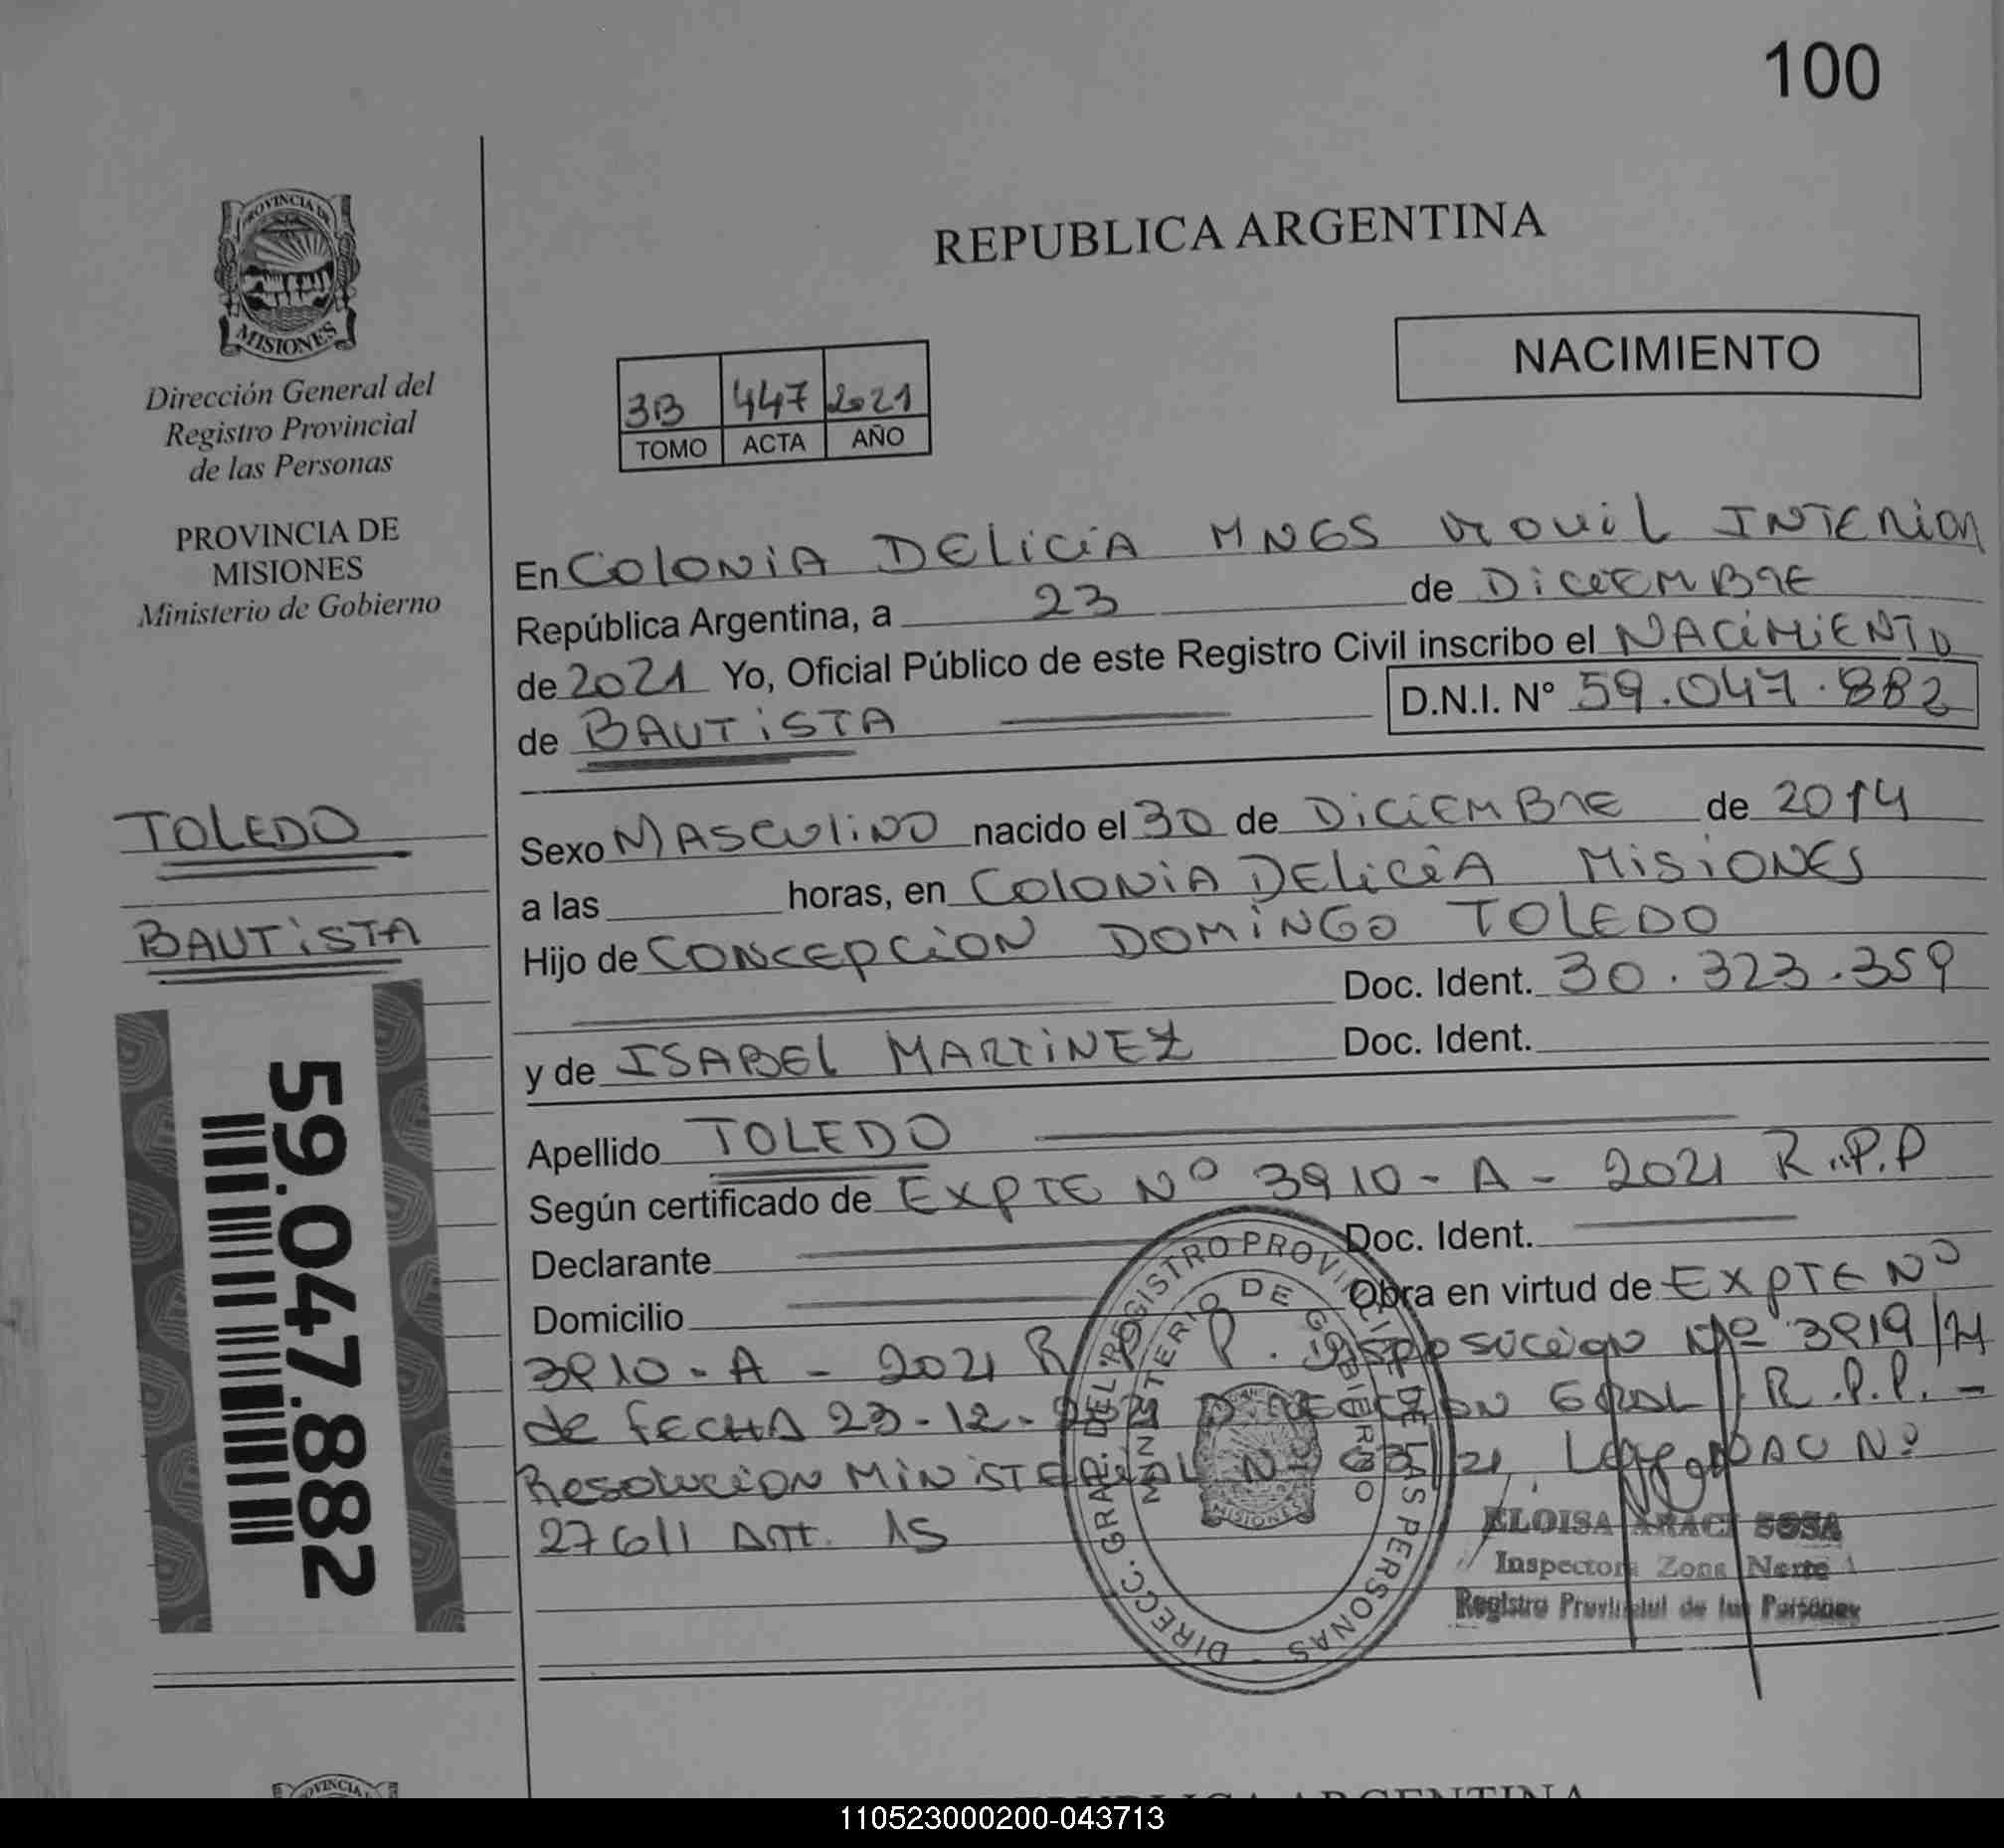 100
PROVINCIA DE
MISIONES
Dirección General del
Registro Provincial
de las Personas
PROVINCIA DE
MISIONES
Ministerio de Gobierno
TOLEDO
BAUTISTA
59.047.882
REPUBLICA ARGENTINA
NACIMIENTO
3B 447 2021
TOMO ACTA AÑO
En COLONIA DELICIA MNES MOVIL INTERIOR
República Argentina, a 23 de DICIEMBRE
de 2021 Yo, Oficial Público de este Registro Civil inscribo el NACIMIENTO
de BAUTISTA D.N.I. N° 59.047.882
Sexo MASCULINO nacido el 30 de DICIEMBRE de 2014
a las horas, en COLONIA DELICIA MISIONES
Hijo de CONCEPCION DOMINGO TOLEDO
Doc. Ident. 30.323.359
y de ISABEL MARTINEZ Doc. Ident.
Apellido TOLEDO
Según certificado de EXPTE Nº 3910-A-2021 R.P.P
Declarante Doc. Ident.
Domicilio Obra en virtud de EXPTE Nº
3910-A-2021 R.P.P. Disposición Nº 3919/21
de FECHA 23-12-2021 DIRECCION GRAL R.P.P.-
Resolución MINISTERIAL Nº /21, Ley NAC Nº
27611 Art. 15
DIRECC. GRAL. DEL REGISTRO PROVINCIAL DE LAS PERSONAS
MINISTERIO DE GOBIERNO
MISIONES
ELOISA ARACI SOSA
Inspectora Zona Norte 1
Registro Provincial de las Personas
REPUBLICA ARGENTINA
110523000200-043713